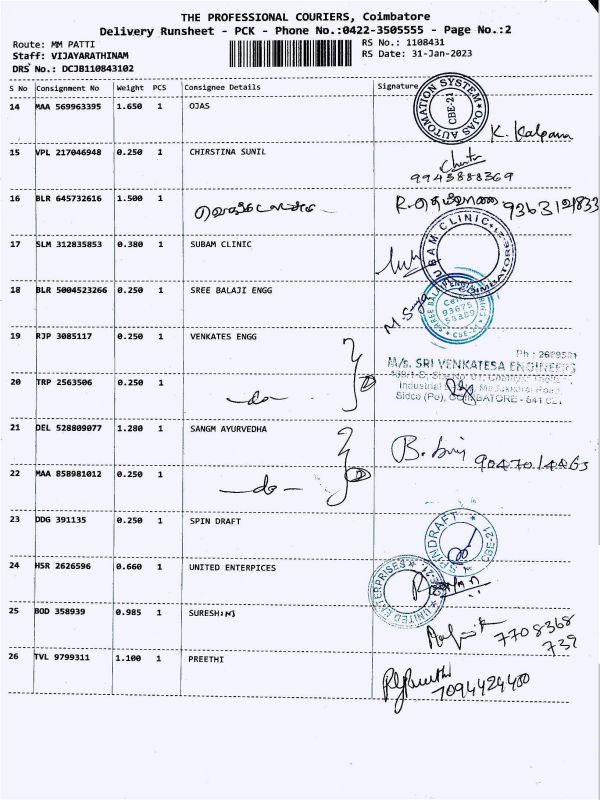 THE PROFESSIONAL COURIERS, Coimbatore
Delivery Runsheet - PCK - Phone No.:0422-3505555 - Page No.:2
Route: MM PATTI
RS No.: 1108431
Staff: VIJAYARATHINAM
RS Date: 31-Jan-2023
DRS No.: DCJB110843102
S No Consignment No Weight PCS Consignee Details Signature
14 MAA 569963395 1.650 1 OJAS
OJAS AUTOMATION SYSTEM CBE-21
K. Kalpana
15 VPL 217046948 0.250 1 CHIRSTINA SUNIL
9943888369
16 BLR 645732616 1.500 1
9363121833
17 SLM 312835853 0.380 1 SUBAM CLINIC
SUBAM CLINIC COIMBATORE-21
18 BLR 5004523266 0.250 1 SREE BALAJI ENGG
M. Surya
Cell:
93675
CBE-21
19 RJP 3085117 0.250 1 VENKATES ENGG
M/s. SRI VENKATESA ENGINEERS
20 TRP 2563506 0.250 1 -do-
Sidco (Po), COIMBATORE - 641 021
21 DEL 528809077 1.280 1 SANGM AYURVEDHA
22 MAA 858981012 0.250 1 -do-
23 DDG 391135 0.250 1 SPIN DRAFT
SPINDRAFT CBE-21
24 HSR 2626596 0.660 1 UNITED ENTERPICES
UNITED ENTERPRISES
25 BOD 358939 0.985 1 SURESH
7708368
739
26 TVL 9799311 1.100 1 PREETHI
7094424400